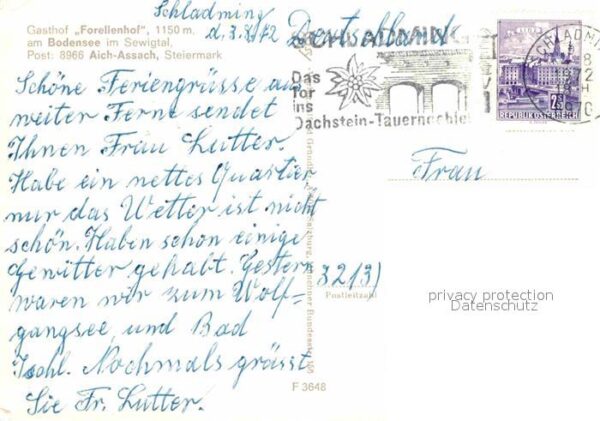 Schladming
d. 3.8.72
Deutschland
Gasthof „Forellenhof", 1150 m,
am Bodensee im Sewigtal,
Post: 8966 Aich-Assach, Steiermark
SCHLADMING
Das
Tor
ins
Dachstein-Tauerngebiet
REPUBLIK ÖSTERREICH
Schöne Feriengrüsse aus
weiter Ferne sendet
Ihnen Frau Lutter.
Habe ein nettes Quartier
nur das Wetter ist nicht
schön. Haben schon einige
Gewitter gehabt. Gestern
waren wir zum Wolf=
gangsee, und Bad
Ischl. Nochmals grüsst
Sie Fr. Lutter.
Frau
3213)
Postleitzahl
privacy protection
Datenschutz
F 3648